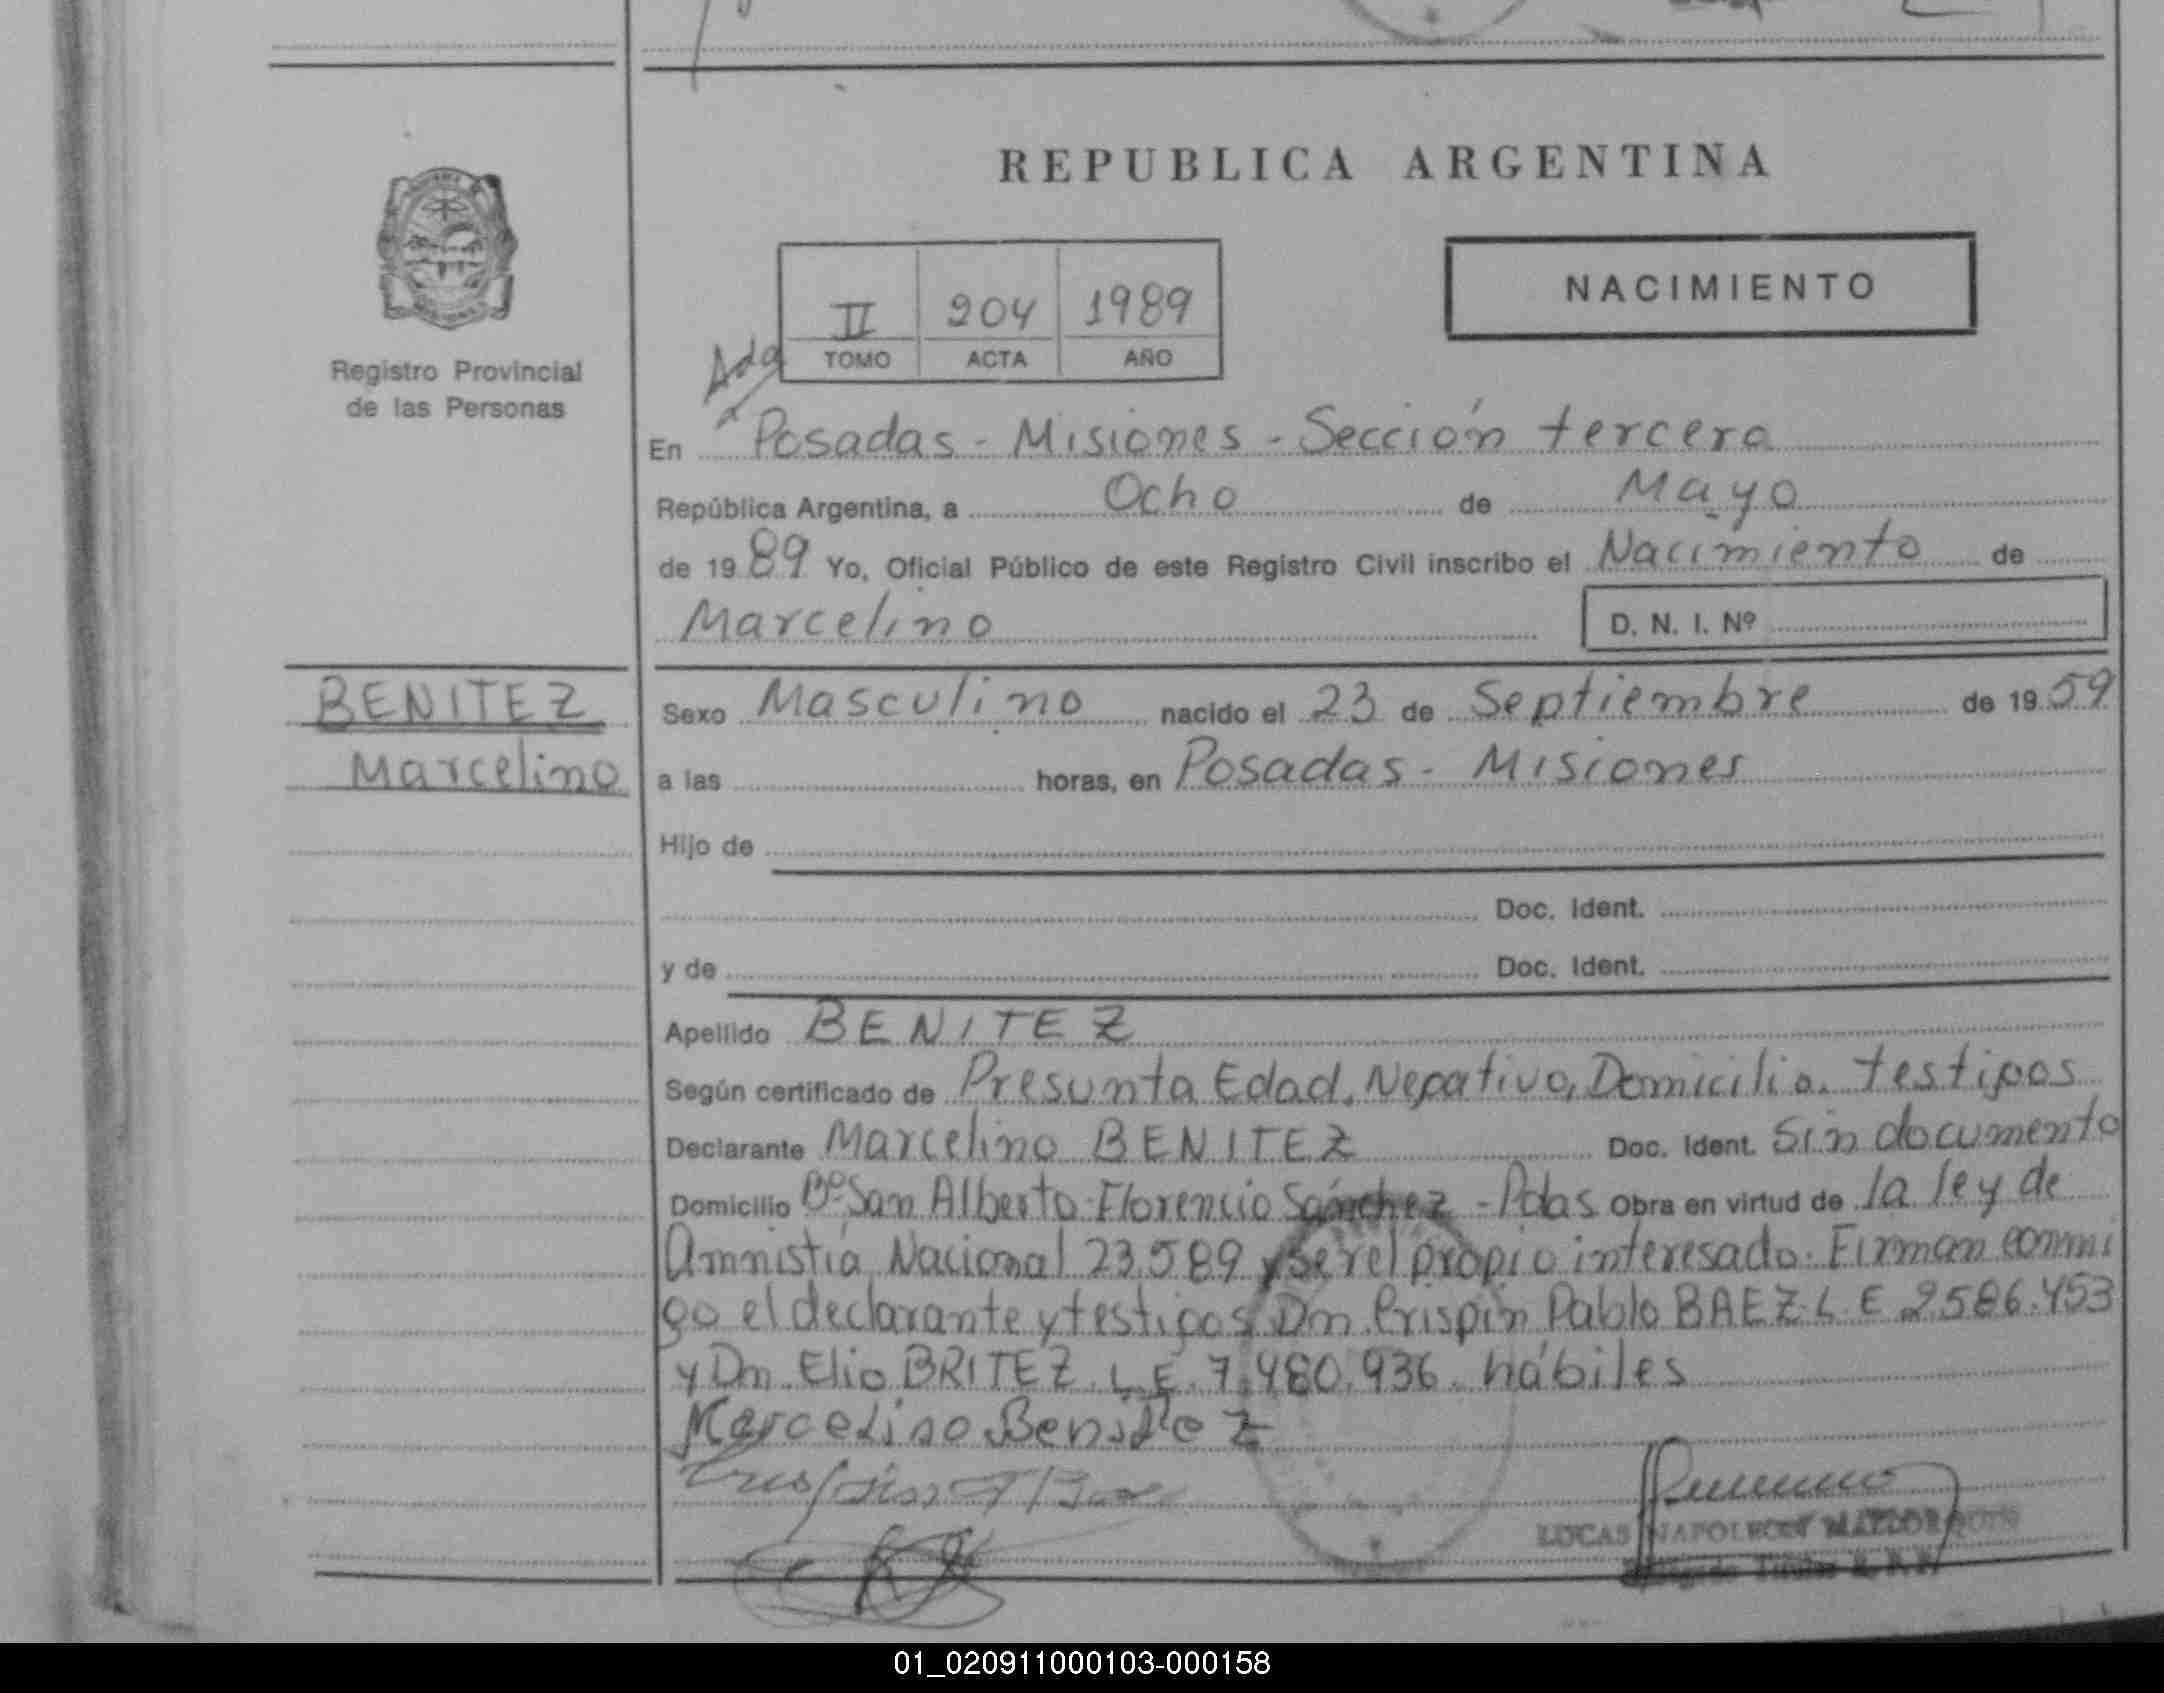 REPUBLICA ARGENTINA
NACIMIENTO
II 204 1989
TOMO ACTA AÑO
Registro Provincial
de las Personas
En Posadas - Misiones - Sección tercera
República Argentina, a Ocho de Mayo
de 1989 Yo, Oficial Público de este Registro Civil inscribo el Nacimiento de
Marcelino D. N. I. Nº
BENITEZ
Marcelino
Sexo Masculino nacido el 23 de Septiembre de 1959
a las horas, en Posadas - Misiones
Hijo de
Doc. Ident.
y de Doc. Ident.
Apellido BENITEZ
Según certificado de Presunta Edad, Negativo, Domicilio. testigos
Declarante Marcelino BENITEZ Doc. Ident. Sin documento
Domicilio Bº San Alberto - Florencio Sánchez - Pdas Obra en virtud de la ley de
Amnistía Nacional 23.589 y ser el propio interesado. Firman conmi
go el declarante y testigos Dn. Crispín Pablo BAEZ L.E 2586.453
y Dn. Elio BRITEZ. L.E. 7.480.936. hábiles
Marcelino Benitez
LUCAS NAPOLEON
01_020911000103-000158